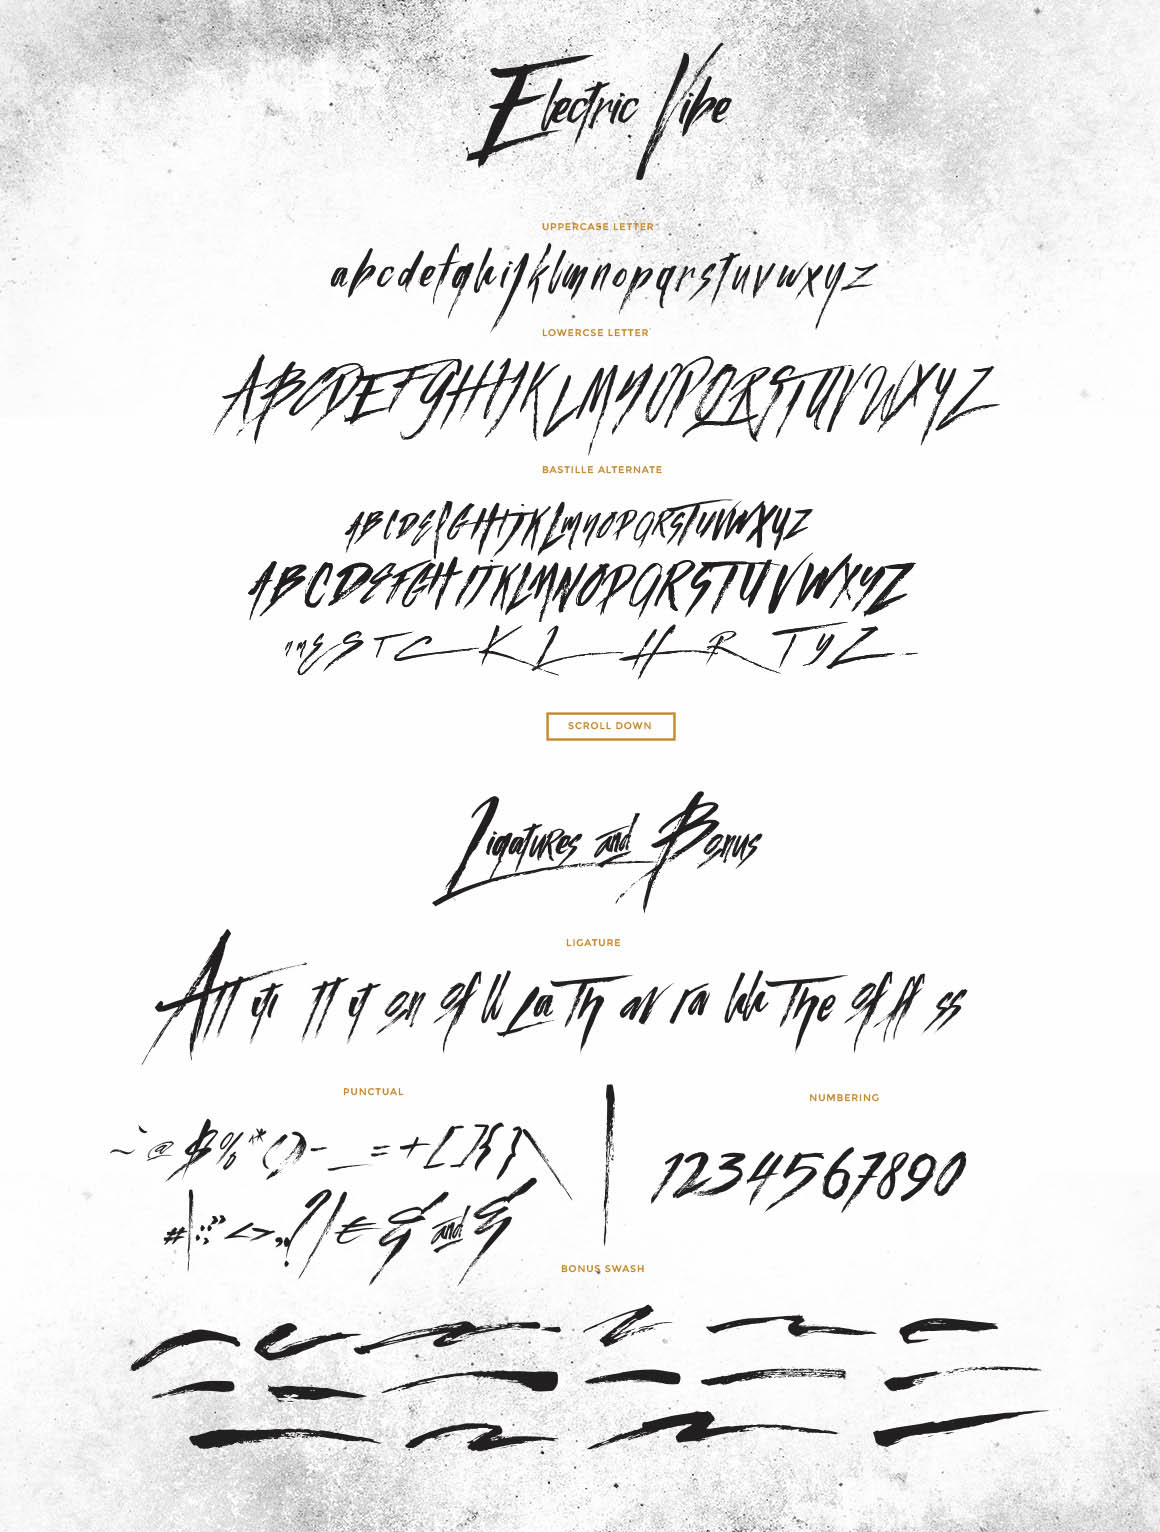 Electric Vibe
UPPERCASE LETTER
abcdefghijklmnopqrstuvwxyz
LOWERCSE LETTER
ABCDEFGHIJKLMNOPQRSTUVWXYZ
BASTILLE ALTERNATE
ABCDEFGHIJKLMNOPQRSTUVWXYZ
ABCDEFGHIJKLMNOPQRSTUVWXYZ
E S T C K L H R T y Z
SCROLL DOWN
Ligatures and Bonus
LIGATURE
Att iti tt it on of ll La Th av ra kk The of ff ss
PUNCTUAL
NUMBERING
~ ` @ $ % " * ( ) - _ = + [ ] { } \
1234567890
# | : ; " < > , . ? / € & and &
BONUS SWASH